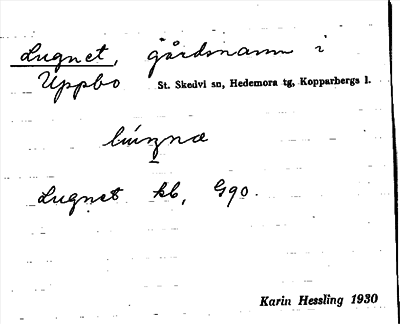 Lugnet, gårdsnamn i
Uppbo St. Skedvi sn, Hedemora tg, Kopparbergs l.
Lugnet kb, G90.
Karin Hessling 1930